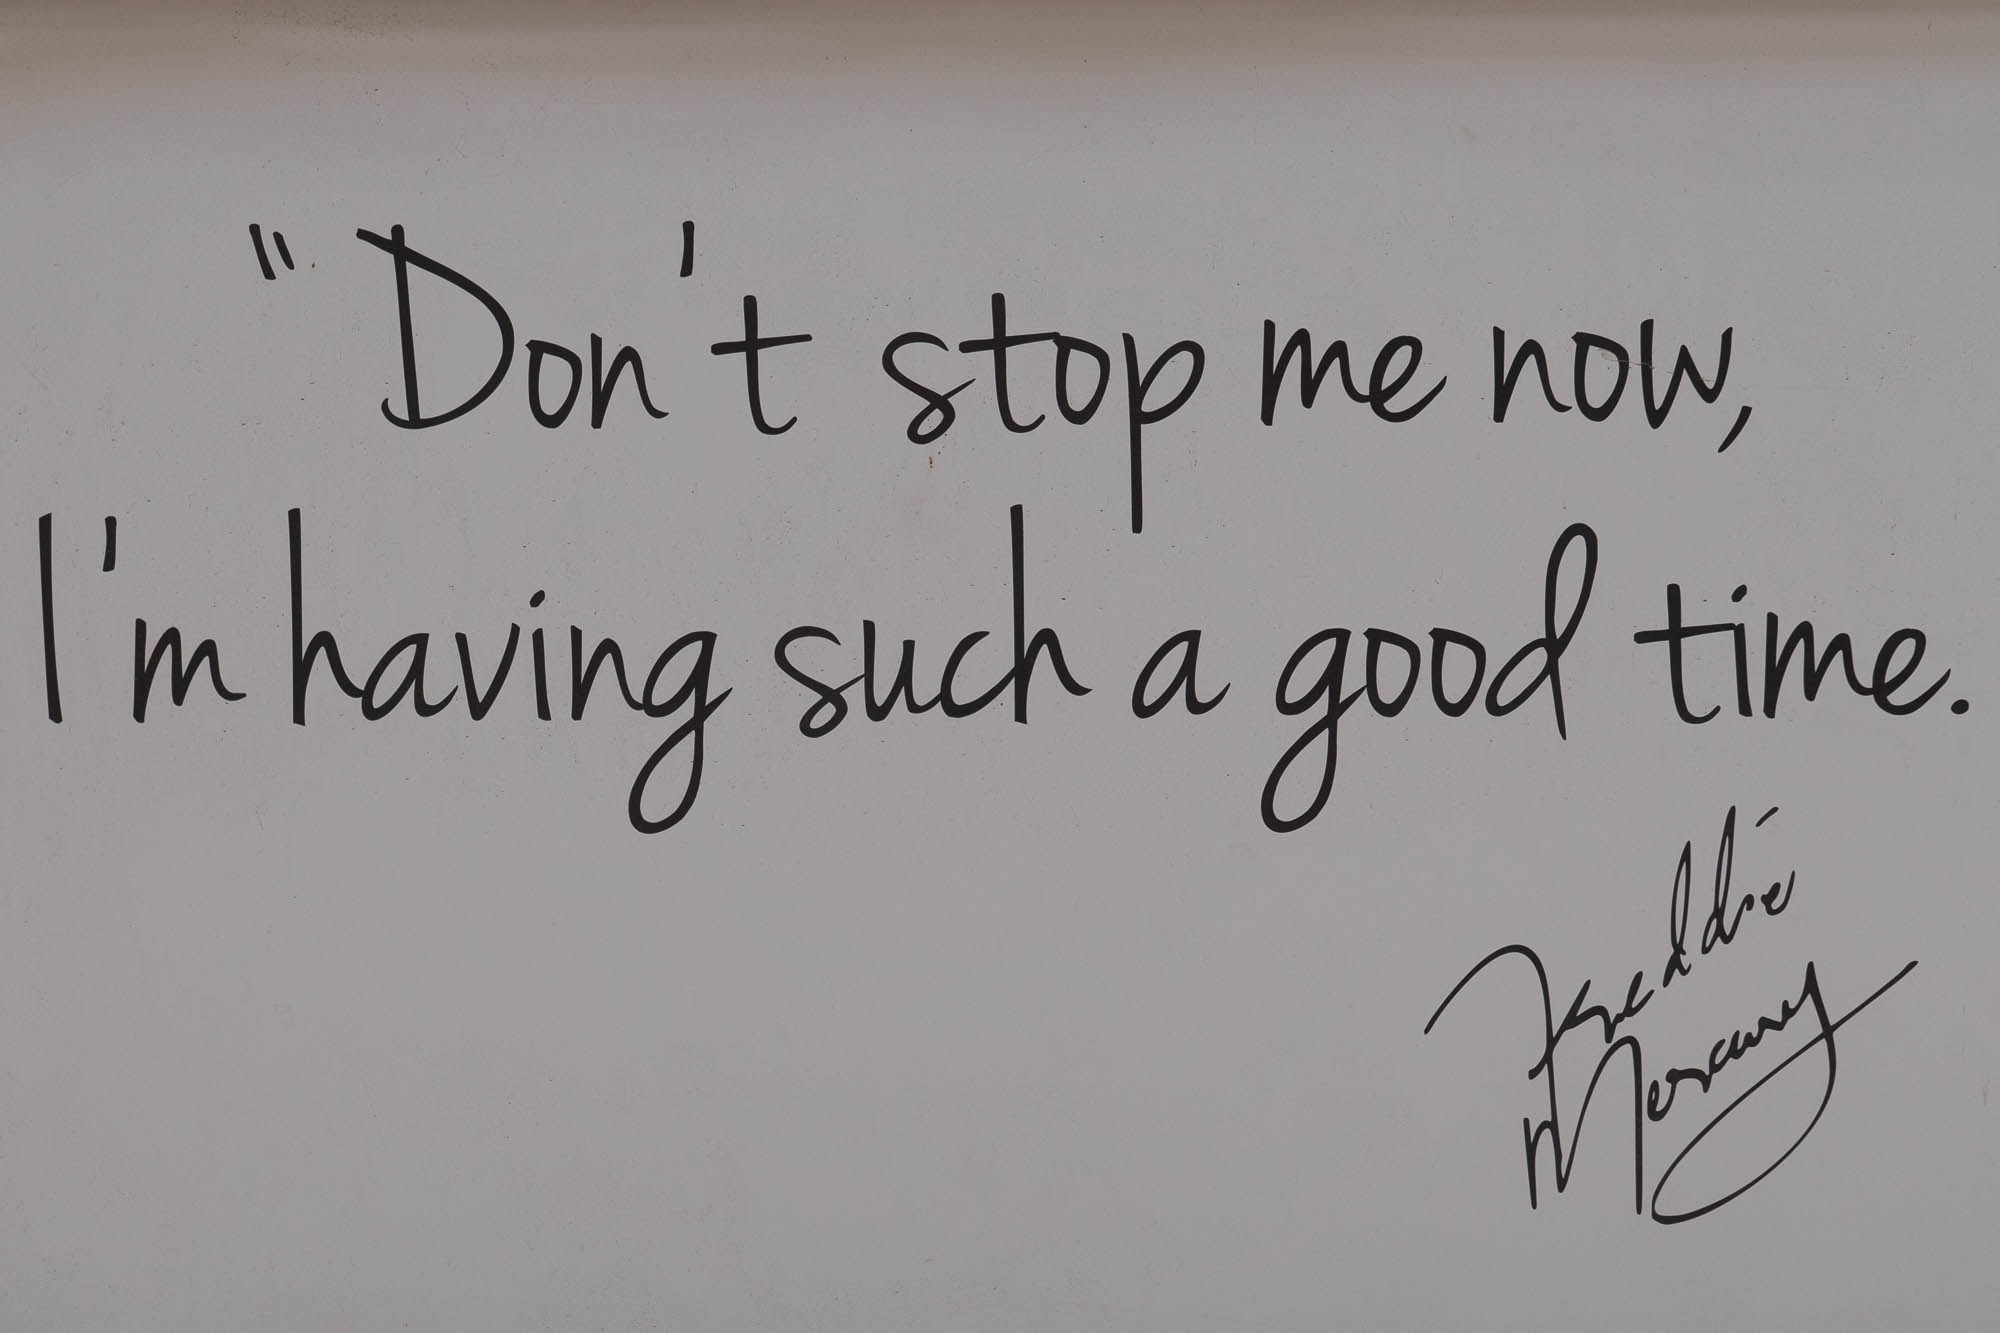 "Don't stop me now,
I'm having such a good time.
Freddie
Mercury